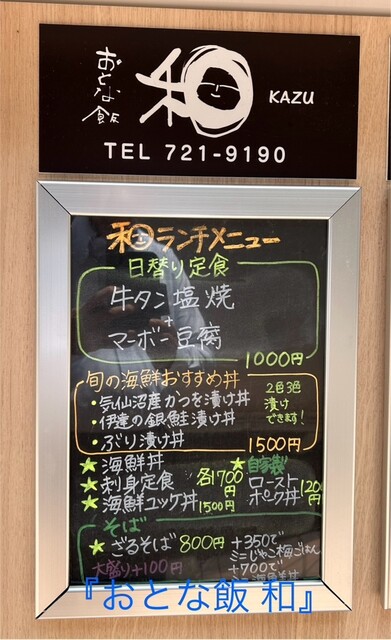 おとな飯
和
KAZU
TEL 721-9190
和ランチメニュー
日替り定食
牛タン塩焼
+
マーボー豆腐
1000円
旬の海鮮おすすめ丼
・気仙沼産かつを漬け丼
・伊達の銀鮭漬け丼
・ぶり漬け丼
2色3色
漬け
できます!
1500円
★海鮮丼
★刺身定食
各1700円
★海鮮ユッケ丼 1500円
★自家製
ロースト
ポーク丼
そば
★ざるそば 800円
大盛り+100円
+350で
ミニじゃこ梅ごはん
+700で
『おとな飯 和』